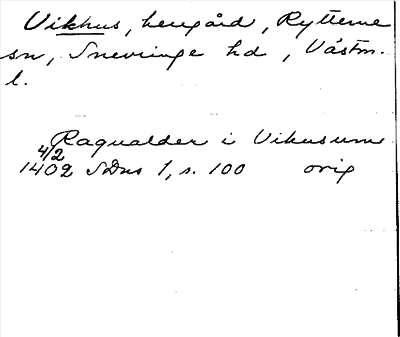 Vikhus, herrgård, Rytterne
sn, Snevringe hd, Västm.
l.
Ragualder i Vikusum
4/2
1402 SDns 1, s. 100 orig